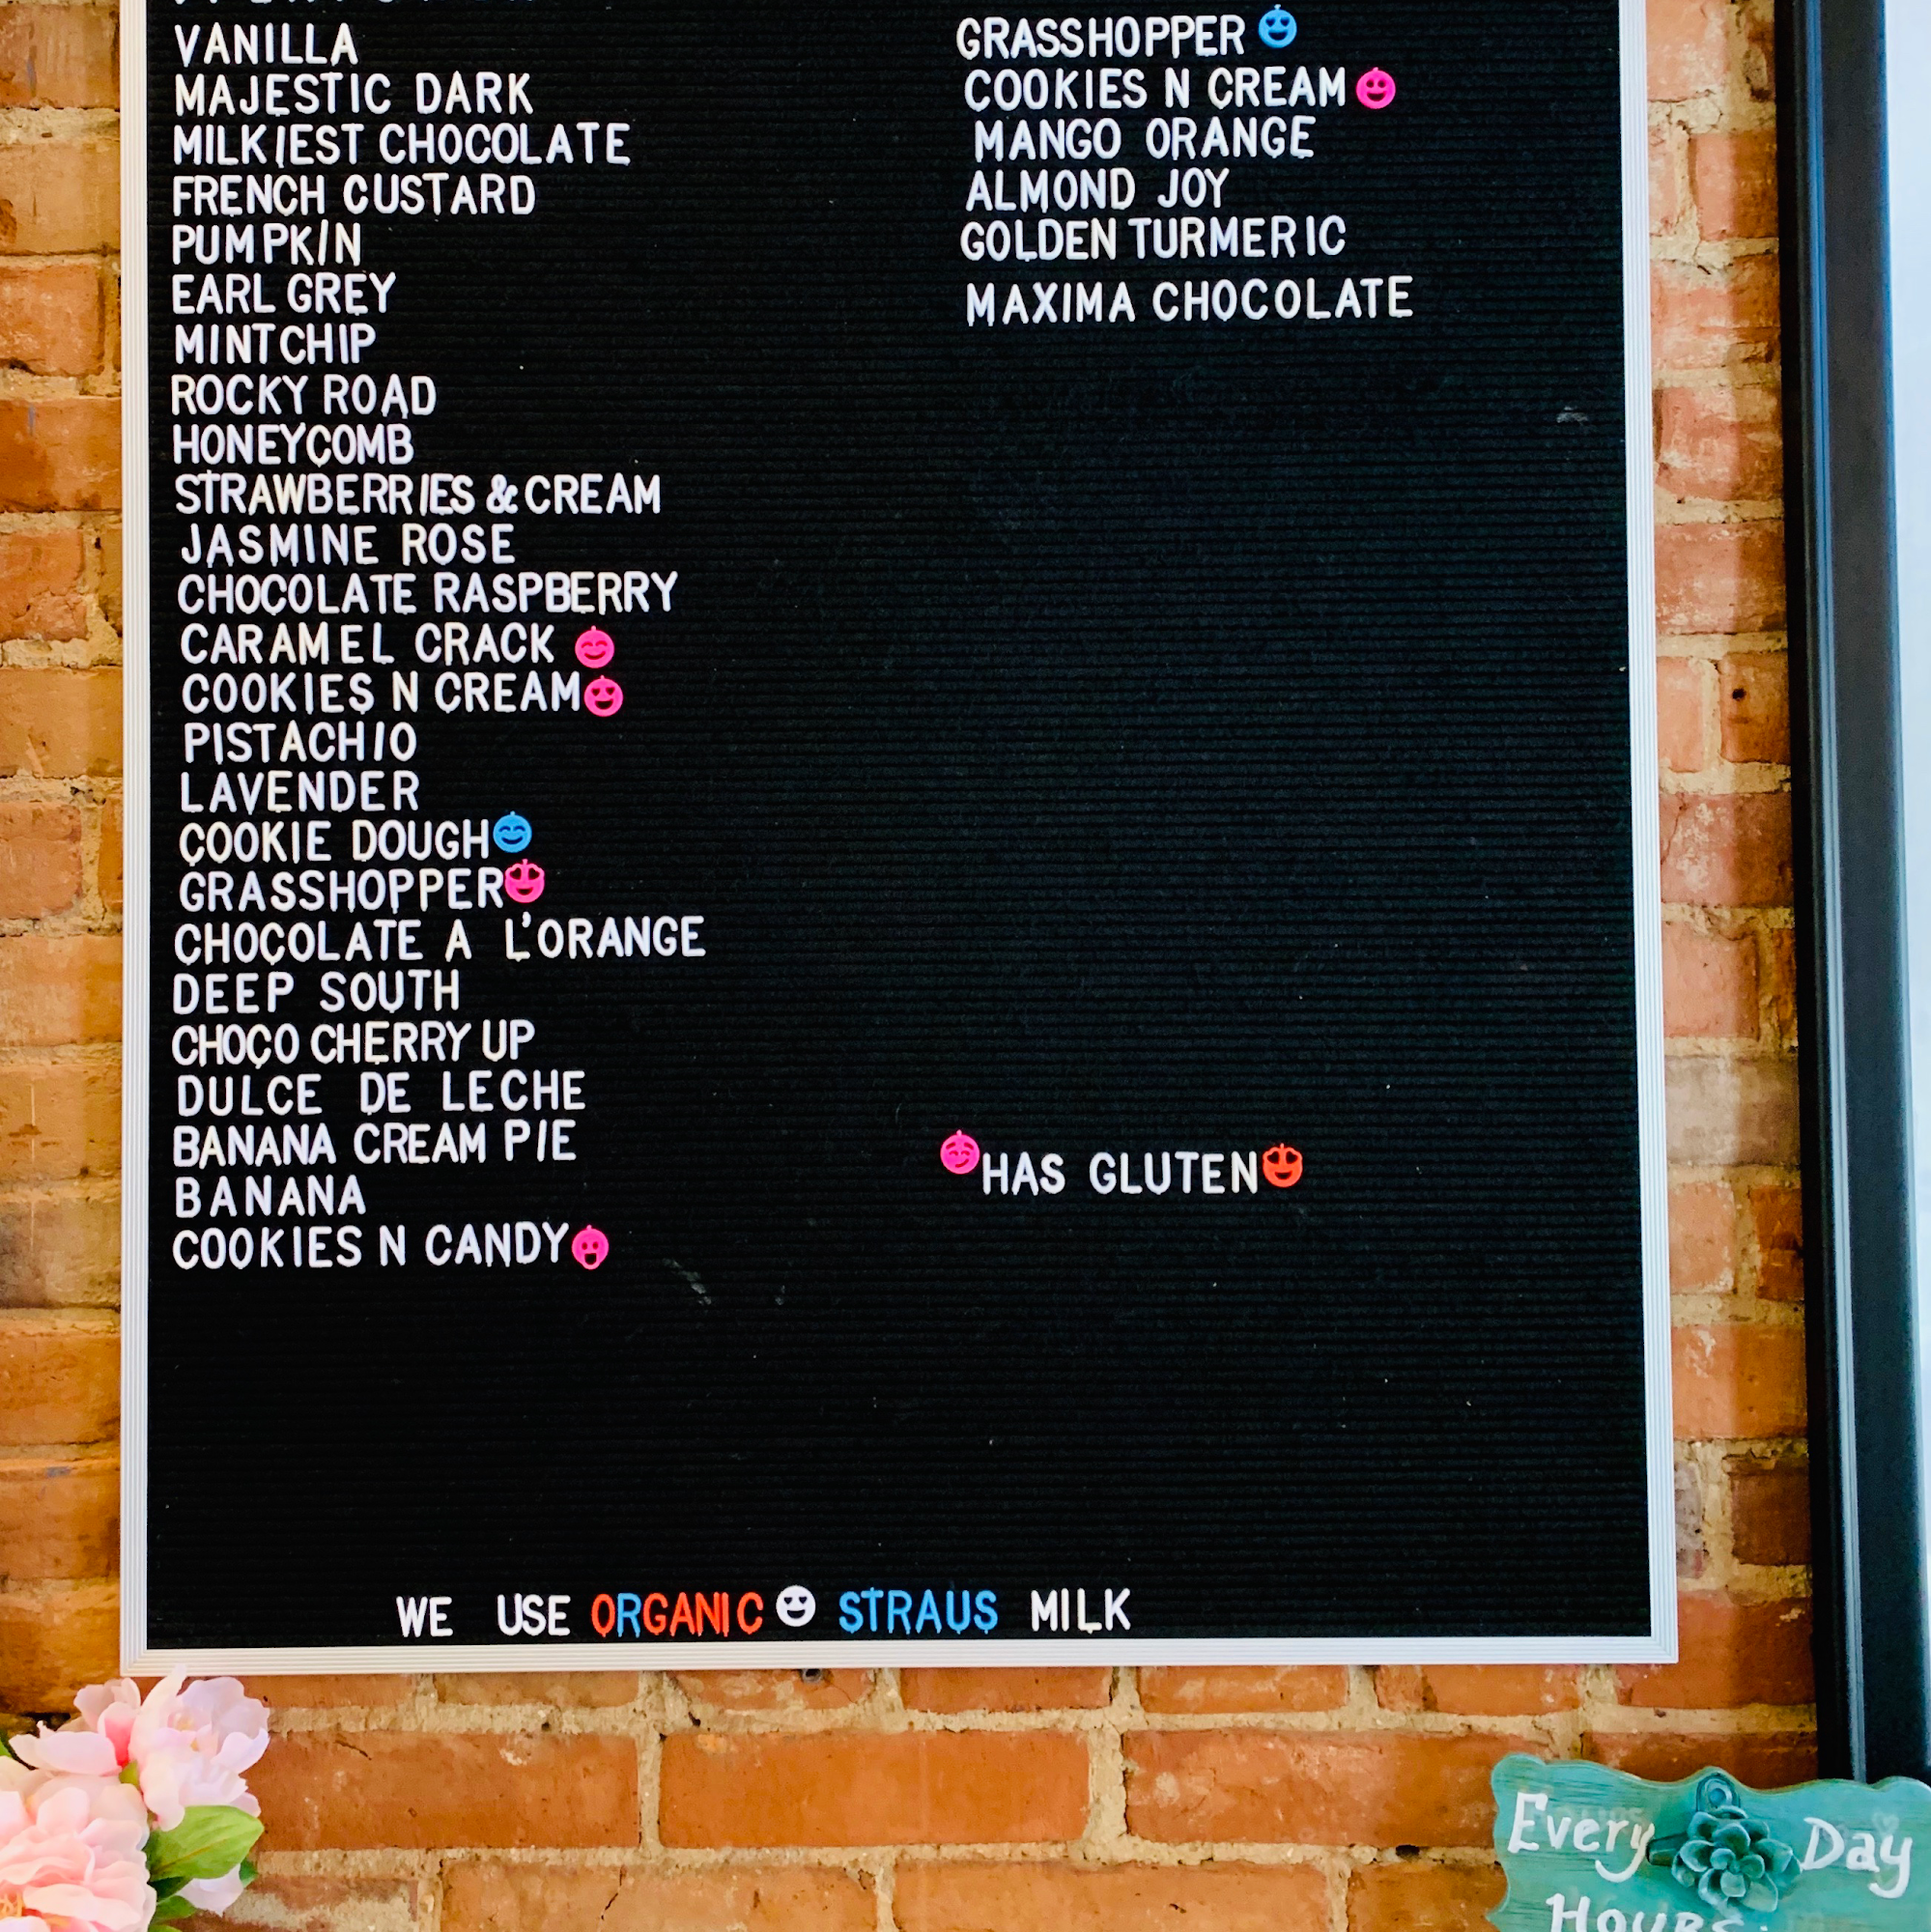 VANILLA
MAJESTIC DARK
MILKIEST CHOCOLATE
FRENCH CUSTARD
PUMPKIN
EARL GREY
MINT CHIP
ROCKY ROAD
HONEYCOMB
STRAWBERRIES & CREAM
JASMINE ROSE
CHOCOLATE RASPBERRY
CARAMEL CRACK
COOKIES N CREAM
PISTACHIO
LAVENDER
COOKIE DOUGH
GRASSHOPPER
CHOCOLATE A L'ORANGE
DEEP SOUTH
CHOCO CHERRY UP
DULCE DE LECHE
BANANA CREAM PIE
BANANA
COOKIES N CANDY
GRASSHOPPER
COOKIES N CREAM
MANGO ORANGE
ALMOND JOY
GOLDEN TURMERIC
MAXIMA CHOCOLATE
HAS GLUTEN
WE USE ORGANIC STRAUS MILK
Every Day
Hours: